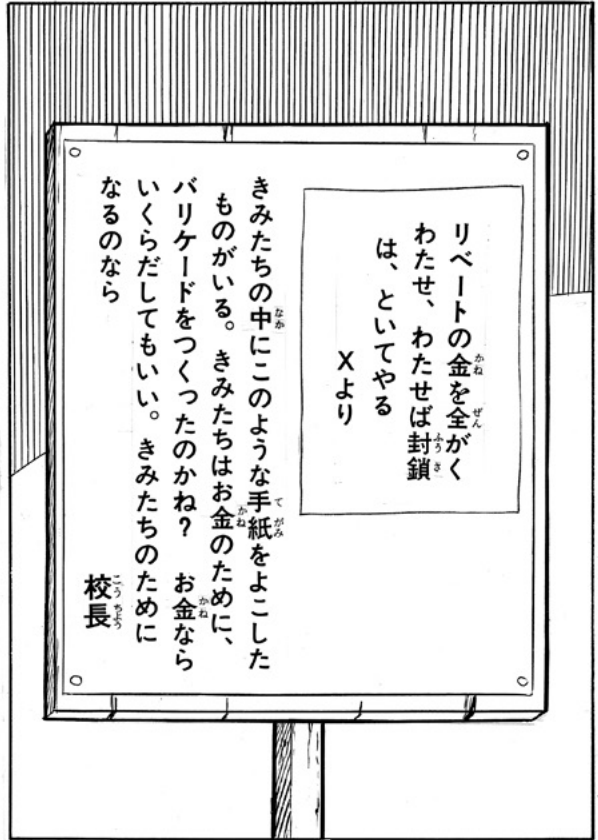 リベートの金を全がく
わたせ、わたせば封鎖
は、といてやる
Xより
きみたちの中にこのような手紙をよこした
ものがいる。きみたちはお金のために、
バリケードをつくったのかね？ お金なら
いくらだしてもいい。きみたちのために
なるのなら
校長